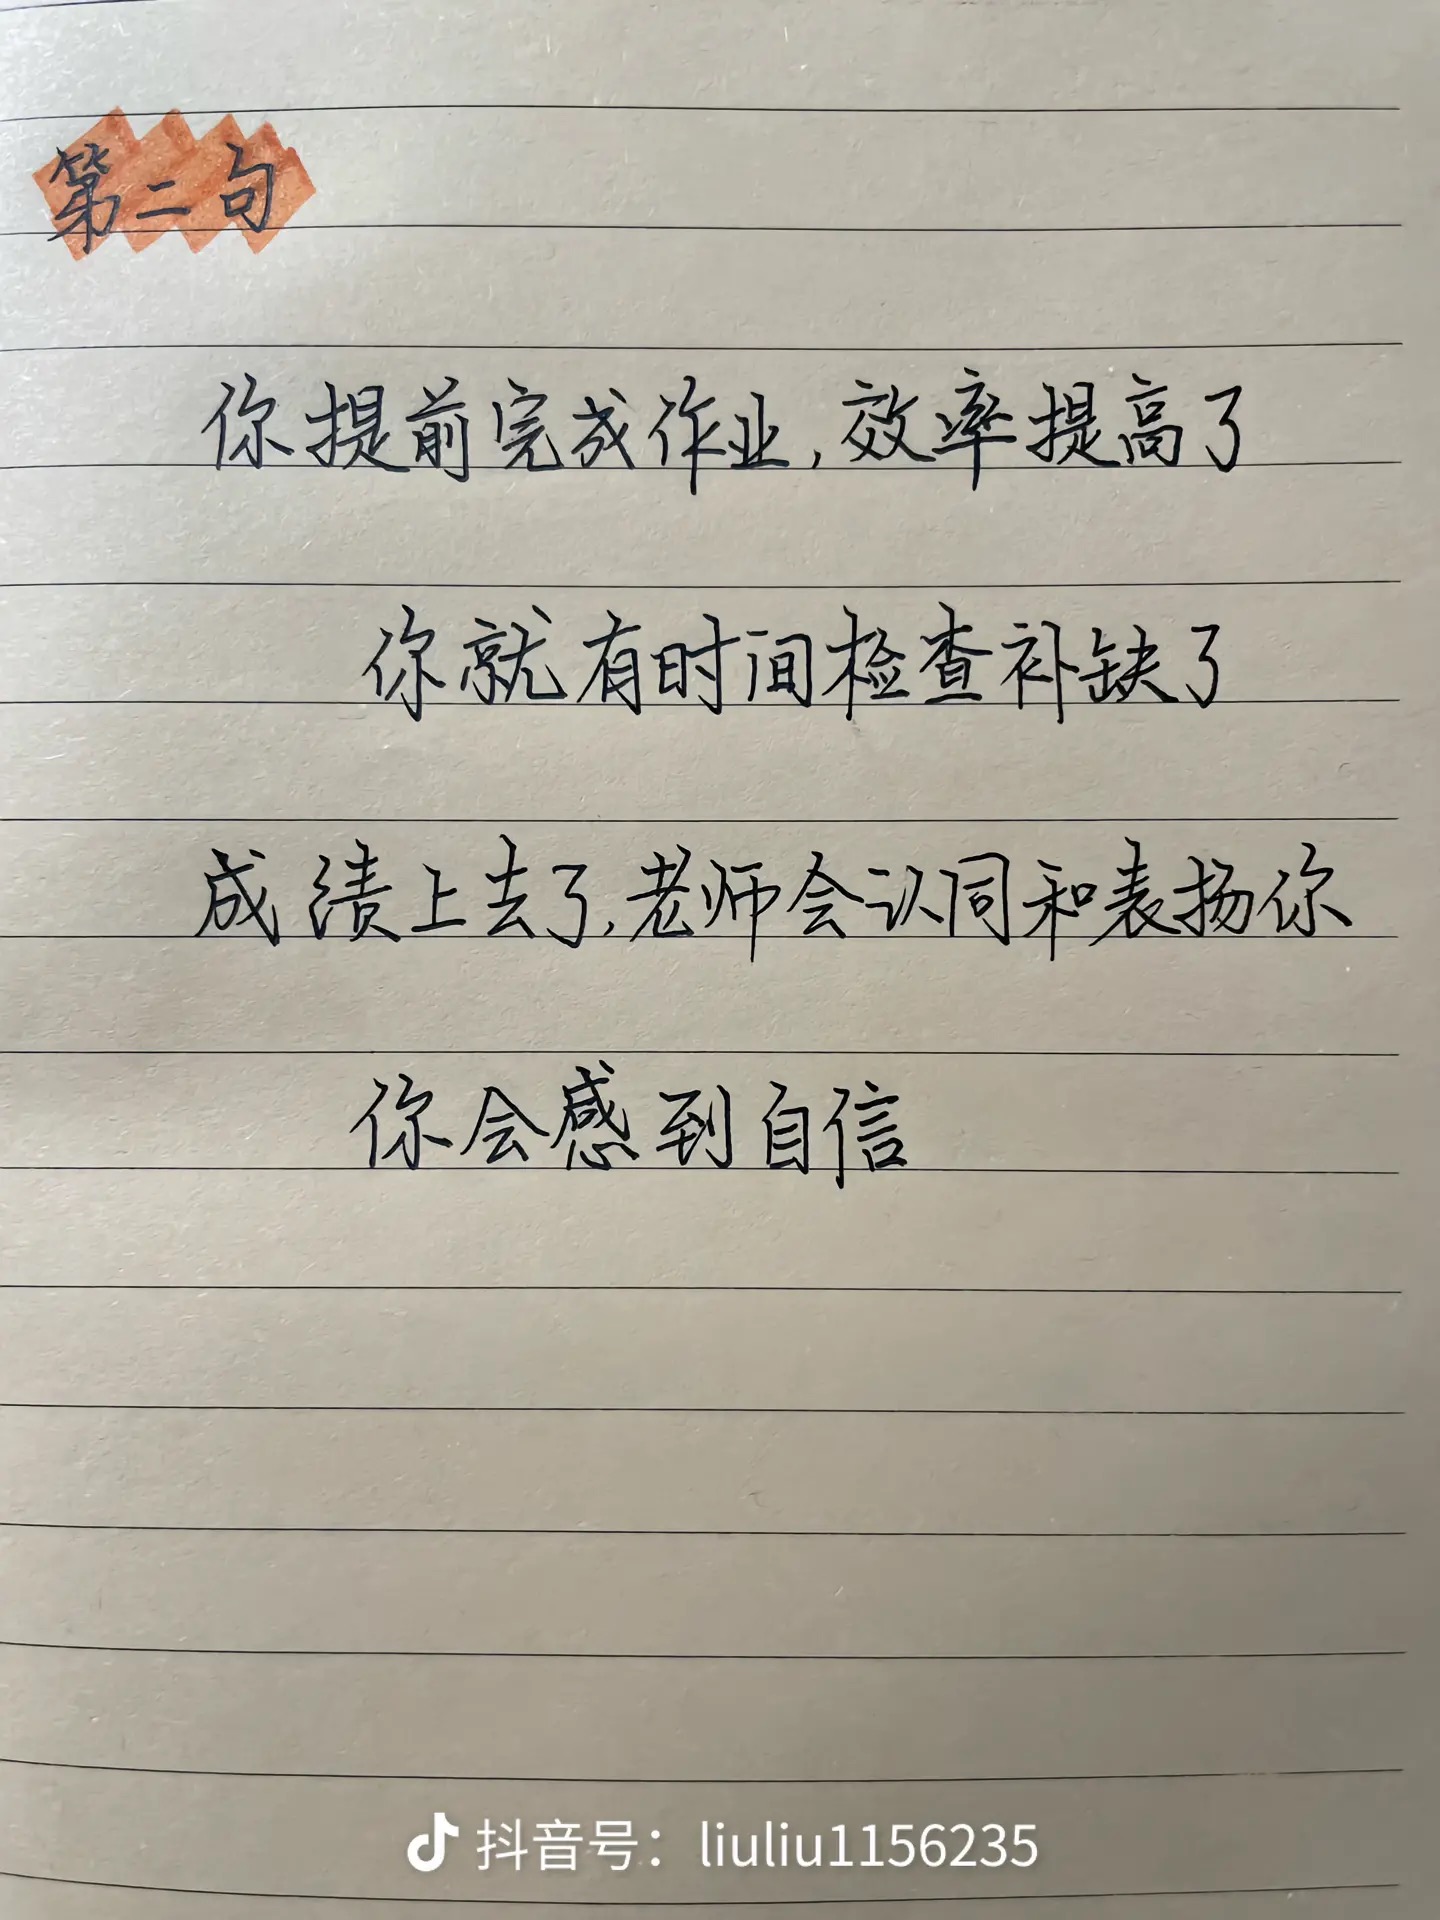 第二句
你提前完成作业,效率提高了
你就有时间检查补缺了
成绩上去了,老师会认同和表扬你
你会感到自信
抖音号：liuliu1156235